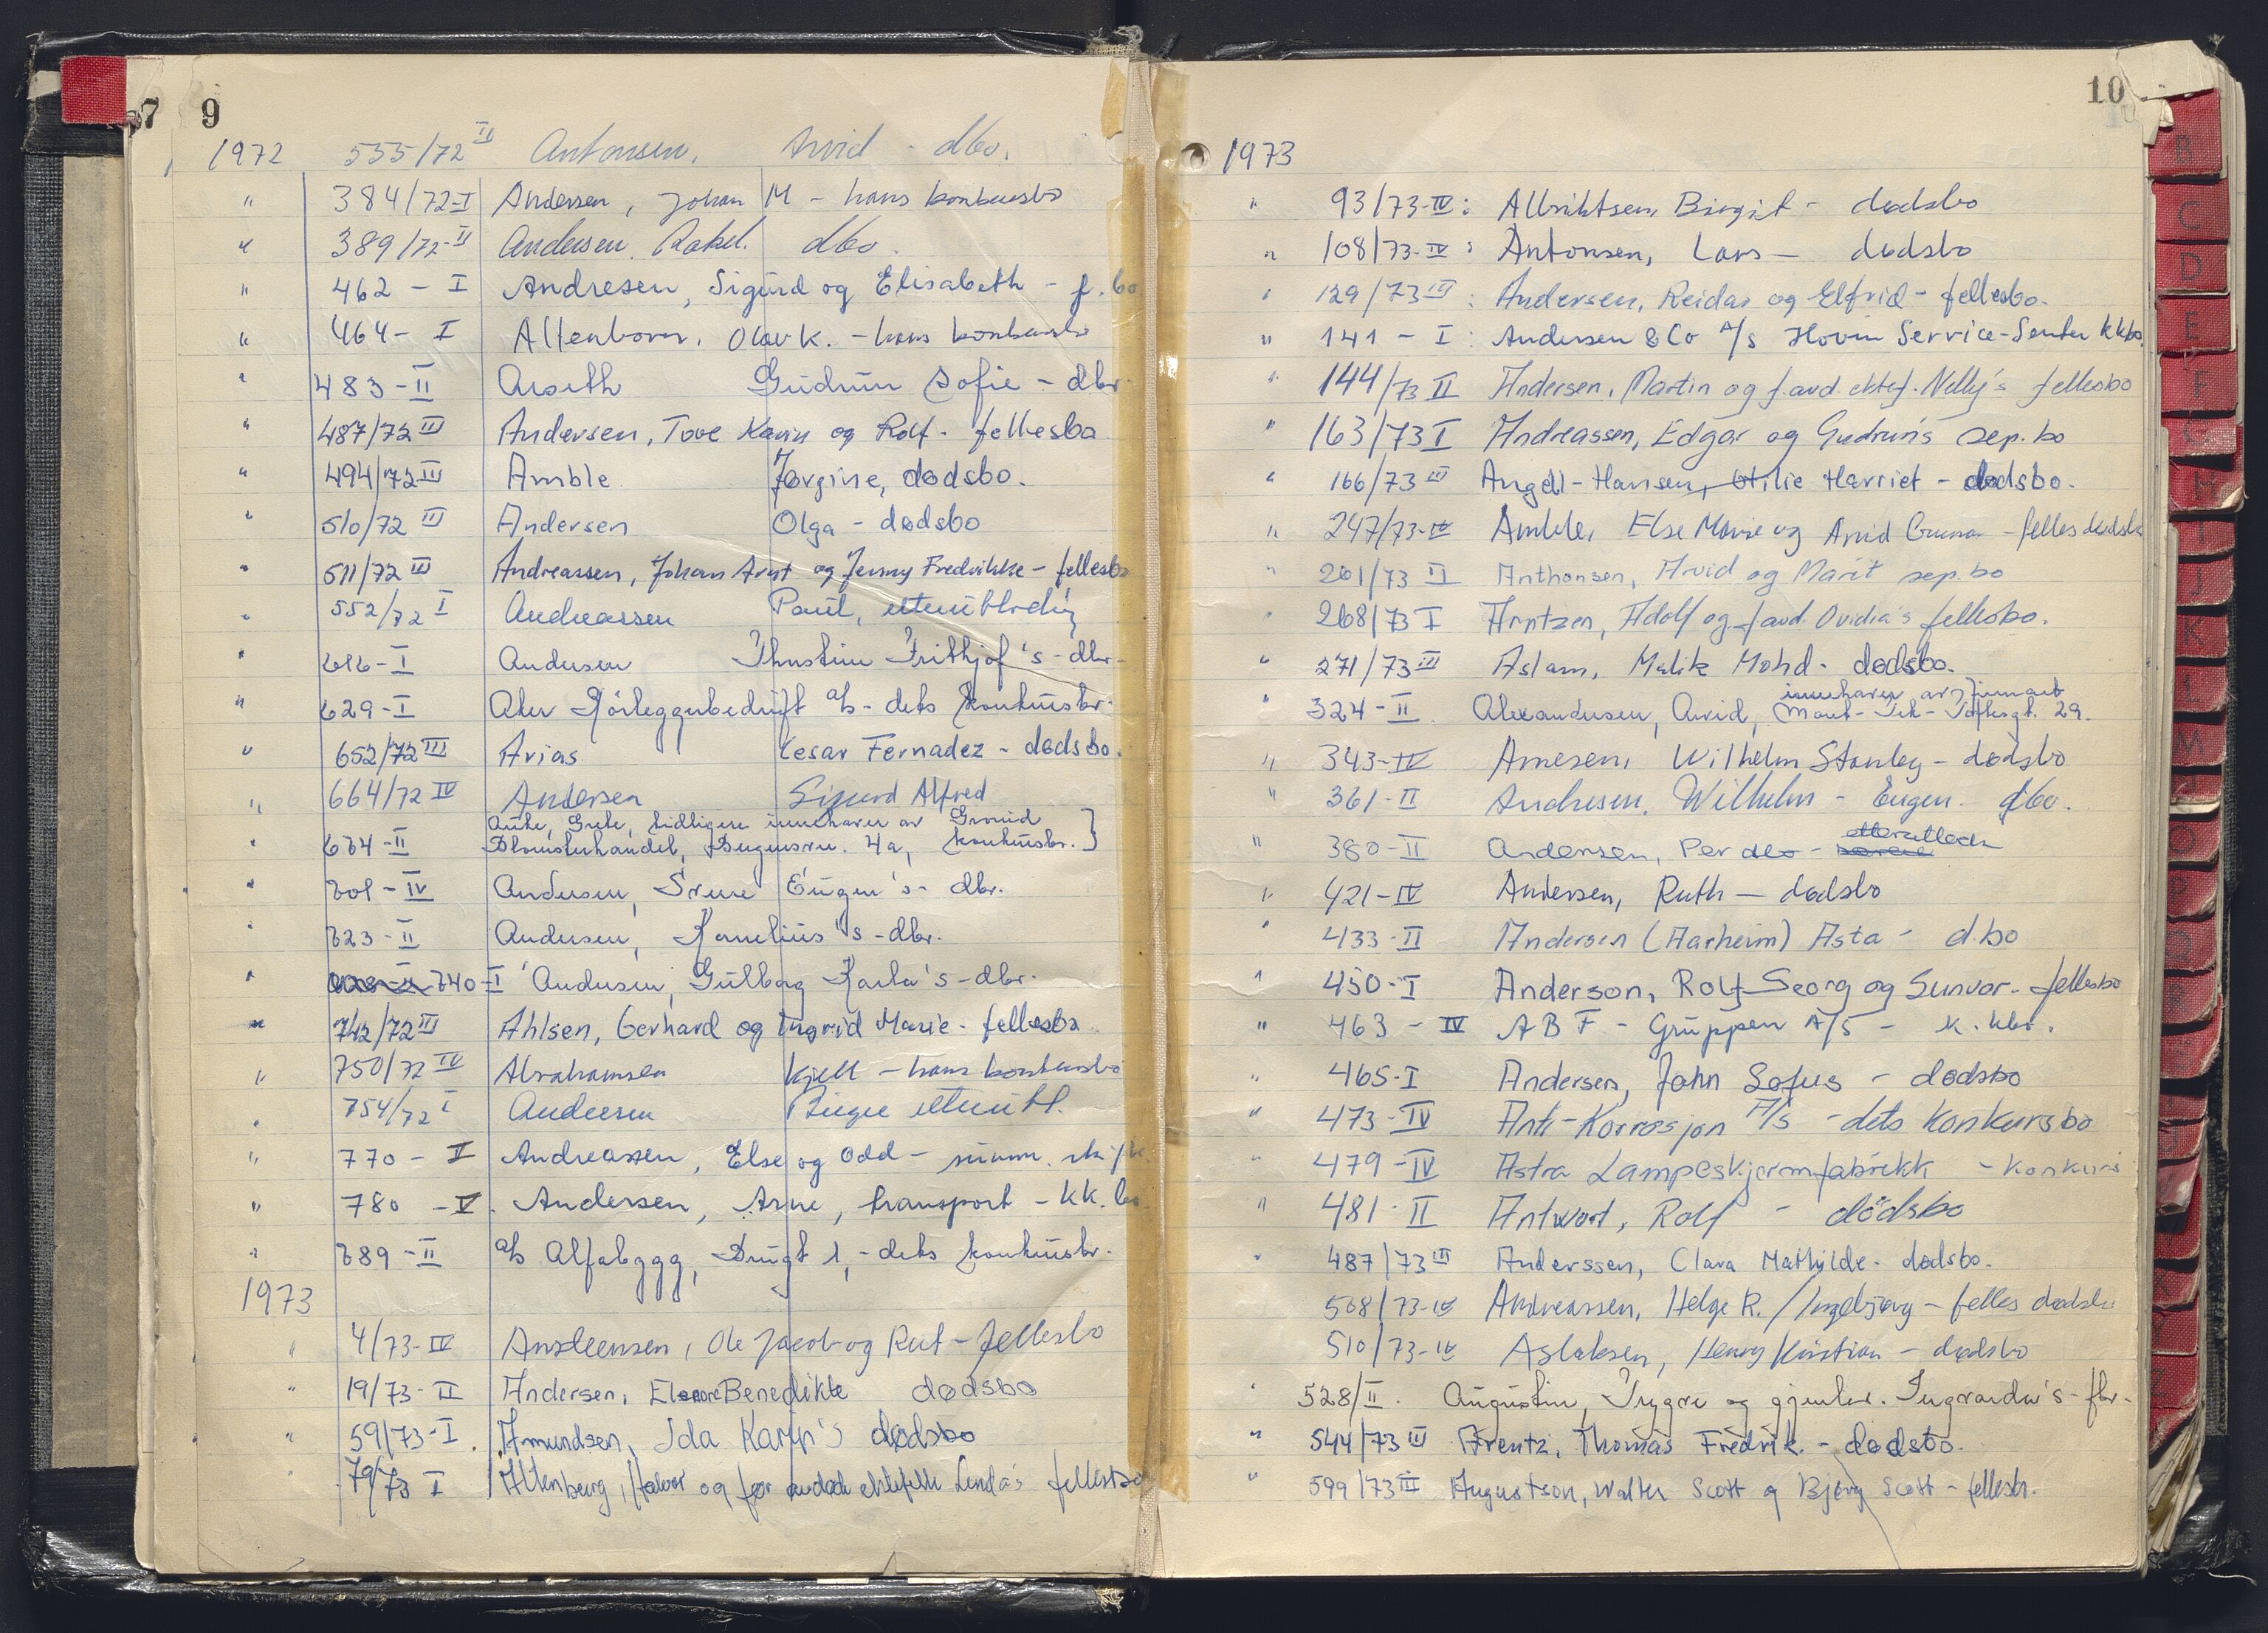 7 9
1972 535/72 II Antonsen, Arvid - dbo.
" 384/72-I Andersen, Johan M - hans konkursbo
" 389/72-II Andersen. Rakel. dbo.
" 462 - I Andresen, Sigurd og Elisabeth - f.bo
" 464 - I Altenborn, Olav K. - hans konkursbo
" 483 - II Arseth Gudrun Sofie - dbr.
" 487/72 III Andersen, Tove Karin og Rolf - fellesbo
" 494/72 III Amble Jørgine, dødsbo.
" 510/72 III Andersen Olga - dødsbo
" 511/72 III Andreassen, Johan Arnt og Jenny Fredrikke - fellesbo
" 552/72 I Andreassen Paul,
" 616 - I Andersen Thustine Frithjof's - dbr -
" 629 - I Aker Rörleggerbedrift a/s - dets konkursbr.
" 652/72 III Arias Cesar Fernadez - dødsbo.
" 664/72 IV Andersen Sigurd Alfred
Grete, tidligere innehaver av
" 674 - II Blomsterhandel, 4a, konkursbr. }
" 701 - IV Andersen, Eugen's - dbr.
" 723 - II Andersen, Kornelius's - dbr.
" 740 - I Andersen, Gulborg Karla's - dbr.
" 742/72 III Ahlsen, Gerhard og Ingrid Marie - fellesbo
" 750/72 IV Abrahamsen Kjell - hans konkursbo
" 754/72 I Andersen Birger
" 770 - V Andreassen, Else og Odd - summ. skifte
" 780 - V. Andersen, Arne, transport - kk.bo
" 789 - II a/s Alfabygg, 1, - dets konkursbr.
1973
" 4/73-IV Ansteensen, Ole Jacob og Rut - fellesbo
" 19/73-II Andersen, Elenore Benedikte dødsbo
" 59/73-I. Amundsen, Ida Karin's dødsbo
" 79/73 I Altenburg, Halvor og før avdøde ektefelle Linda's fellesbo
10
1973
" 93/73-IV: Albriktsen, Birgit - dødsbo
" 108/73-IV: Antonsen, Lars - dødsbo
" 129/73 III: Andersen, Reidar og Elfrid - fellesbo.
" 141 - I: Andersen & Co A/s Hovin Service-Senter kkbo.
" 144/73 II Andersen, Martin og f.avd. ektef. Nelly's fellesbo
" 163/73 I Andreassen, Edgar og Gudrun's sep.bo
" 166/73 III Angell-Hansen, Otilie Harriet - dødsbo.
" 247/73-IV Amble, Else Marie og Arvid Gunnar - felles dødsbo
" 261/73 II Anthonsen, Arvid og Marit sep.bo
" 268/73 I Arntzen, Adolf og f.avd. Ovidia's fellesbo.
" 271/73 III Aslam, Malik Mohd - dødsbo.
innehaver av firmaet
" 324 - II. Alexandersen, Arvid, Mont-Tek- Toftesgt. 29.
" 343-IV Arnesen, Wilhelm Stanley - dødsbo
" 361 - II Andresen, Wilhelm - Eugen. dbo.
" 380 - II Andersen, Per dbo -
" 421 - IV Andersen, Ruth - dødsbo
" 433 - II Andersen (Aarheim) Asta - d.bo
" 450 - I Anderson, Rolf Georg og Gunvor - fellesbo
" 463 - IV ABF - Gruppen A/S - k.kbo.
" 465-I Andersen, John Sofus - dødsbo
" 473-IV Anti-Korrosjon A/S - dets konkursbo
" 479-IV Astra Lampeskjermfabrikk - konkurs
" 481 - II Antwort, Rolf - dödsbo
" 487/73 III Anderssen, Clara Mathilde - dødsbo.
508/73-IV Andreassen, Helge R. / Ingebjørg - felles dødsbo
510/73-IV Aslaksen, Henry Kristian - dødsbo
" 528/II. Augustin, Trygve og gjenlev. Ingvarda's - fbr.
" 544/73 III Arentz, Thomas Fredrik. - dødsbo.
" 599/73 III Augustson, Walter Scott og Bjørg Scott - fellesbr.
B
C
D
E
F
G
H
I
J
K
L
M
N
O
P